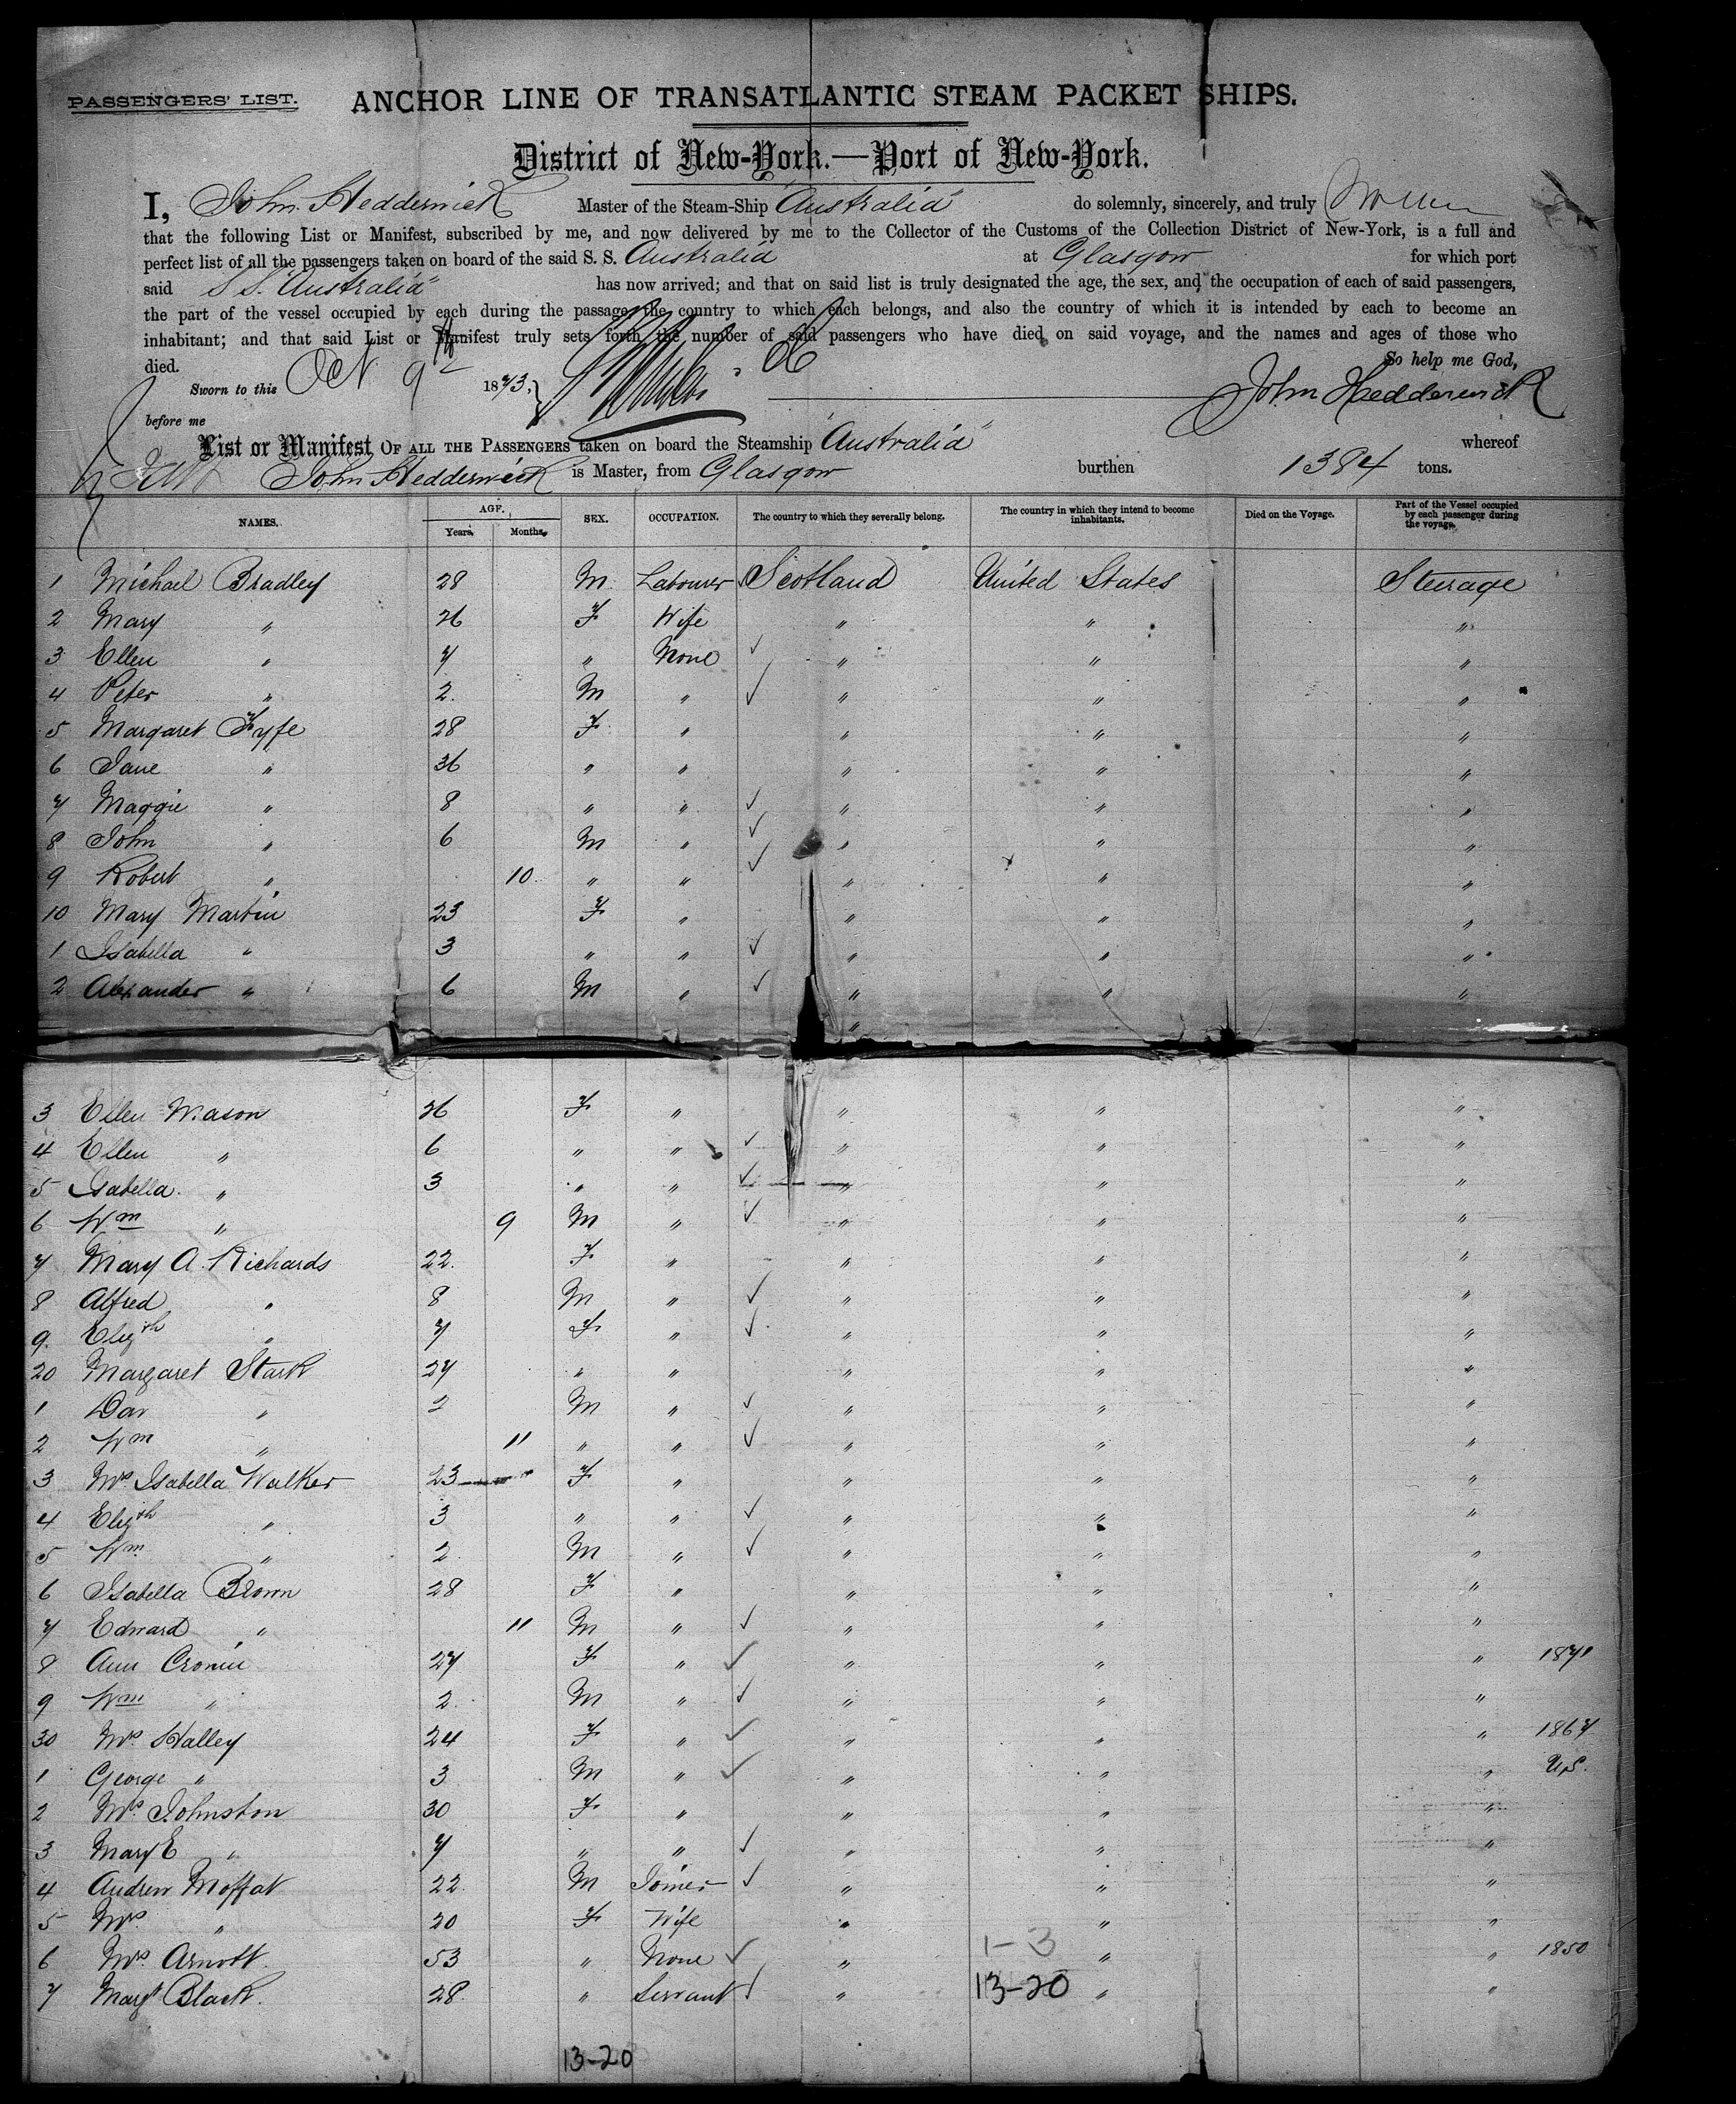 PASSENGERS' LIST. ANCHOR LINE OF TRANSATLANTIC STEAM PACKET SHIPS.
District of New-York.—Port of New-York.
I, John Hedderwick Master of the Steam-Ship "Australia" do solemnly, sincerely, and truly
that the following List or Manifest, subscribed by me, and now delivered by me to the Collector of the Customs of the Collection District of New-York, is a full and
perfect list of all the passengers taken on board of the said S. S. Australia at Glasgow for which port
said S S. "Australia" has now arrived; and that on said list is truly designated the age, the sex, and the occupation of each of said passengers,
the part of the vessel occupied by each during the passage, the country to which each belongs, and also the country of which it is intended by each to become an
inhabitant; and that said List or Manifest truly sets forth the number of said passengers who have died on said voyage, and the names and ages of those who
died. So help me God,
Sworn to this Oct 9th 1873, John Hedderwick
before me
List or Manifest OF ALL THE PASSENGERS taken on board the Steamship "Australia" whereof
John Hedderwick is Master, from Glasgow burthen 1384 tons.
NAMES. AGE. Years. Months. SEX. OCCUPATION. The country to which they severally belong. The country in which they intend to become inhabitants. Died on the Voyage. Part of the Vessel occupied by each passenger during the voyage.
1 Michael Bradley 28 M Labourer Scotland United States Steerage
2 Mary " 26 F Wife " " "
3 Ellen " 7 " None ✓ " " "
4 Peter " 2. M " ✓ " " "
5 Margaret Fyfe 28 F " " " "
6 Jane " 36 " " " " "
7 Maggie " 8 " " ✓ " " "
8 John " 6 M " ✓ " " "
9 Robert " 10 " " ✓ " " "
10 Mary Martin 23 F " " " "
1 Isabella " 3 " " ✓ " " "
2 Alexander " 6 M " ✓ " " "
"
3 Ellen Mason 26 F " " " "
4 Ellen " 6 " " ✓ " " "
5 Isabella " 3 " " ✓ " " "
6 Wm " 9 M " ✓ " " "
7 Mary A. Richards 22. F " " " "
8 Alfred " 8 M " ✓ " " "
9. Elizth " 7 F " ✓ " " "
20 Margaret Stark 27 " " " " "
1 Dav " 2 M " ✓ " " "
2 Wm " 11 " " ✓ " " "
3 Mrs Isabella Walker 23 F " " " "
4 Elizth " 3 " " ✓ " " "
5 Wm " 2 M " ✓ " " "
6 Isabella Brown 28 F " " " "
7 Edward " 11 M " ✓ " " "
8 Ann Cronin 27 F " ✓ " " " 1871
9 Wm " 2 M " ✓ " " "
30 Mrs Halley 24 F " ✓ " " " 1867
1 George " 3 M " ✓ " " " U.S.
2 Mrs Johnston 30 F " " " "
3 Mary E " 7 " " ✓ " " "
4 Andrew Moffat 22 M Joiner ✓ " " "
5 Mrs " 20 F Wife " " "
6 Mrs Arnott 53 " None ✓ " 1-3 " " 1850
7 Margt Black. 28 " Servant ✓ " 13-20 " "
13-20